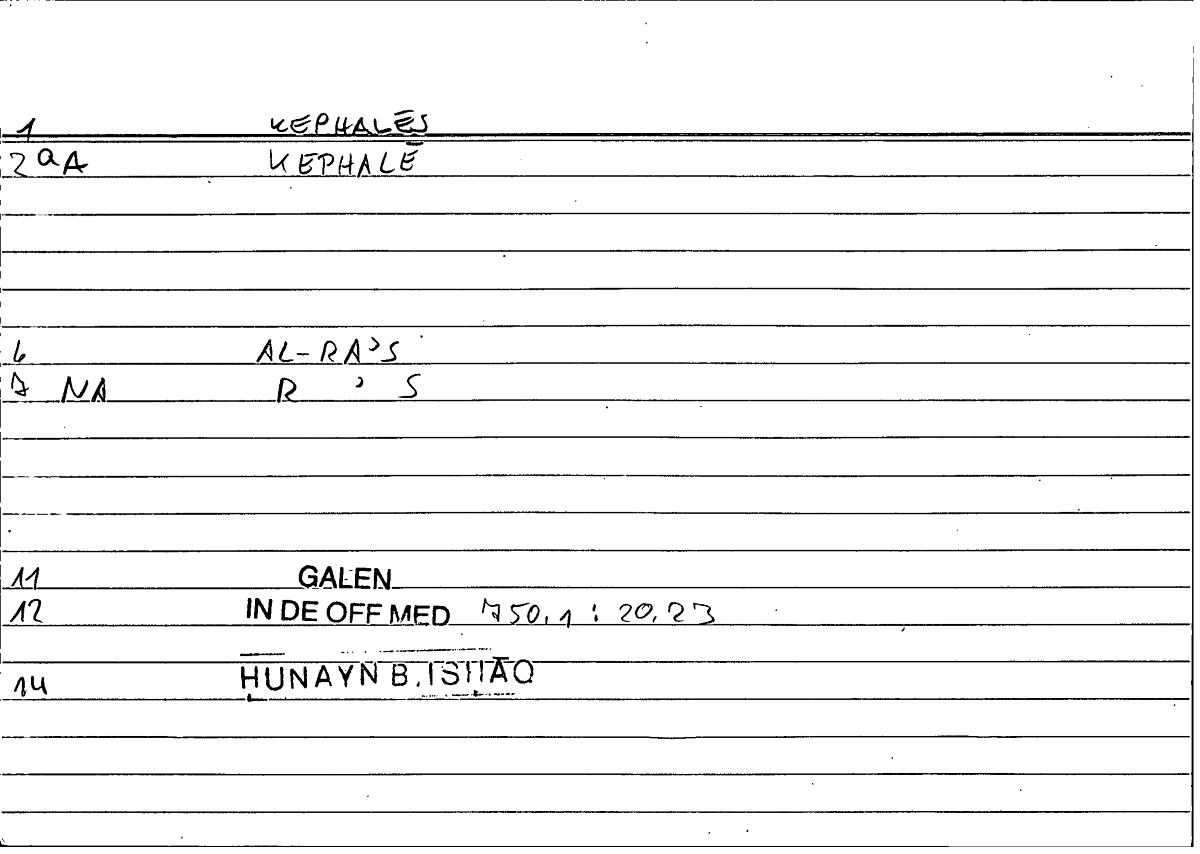 1 KEPHALĒS
2 aA KEPHALĒ
6 AL-RAʾS
7 NA R ʾ S
11 GALEN
12 IN DE OFF MED 750,1 : 20,23
14 ḤUNAYN B. ISḤĀQ